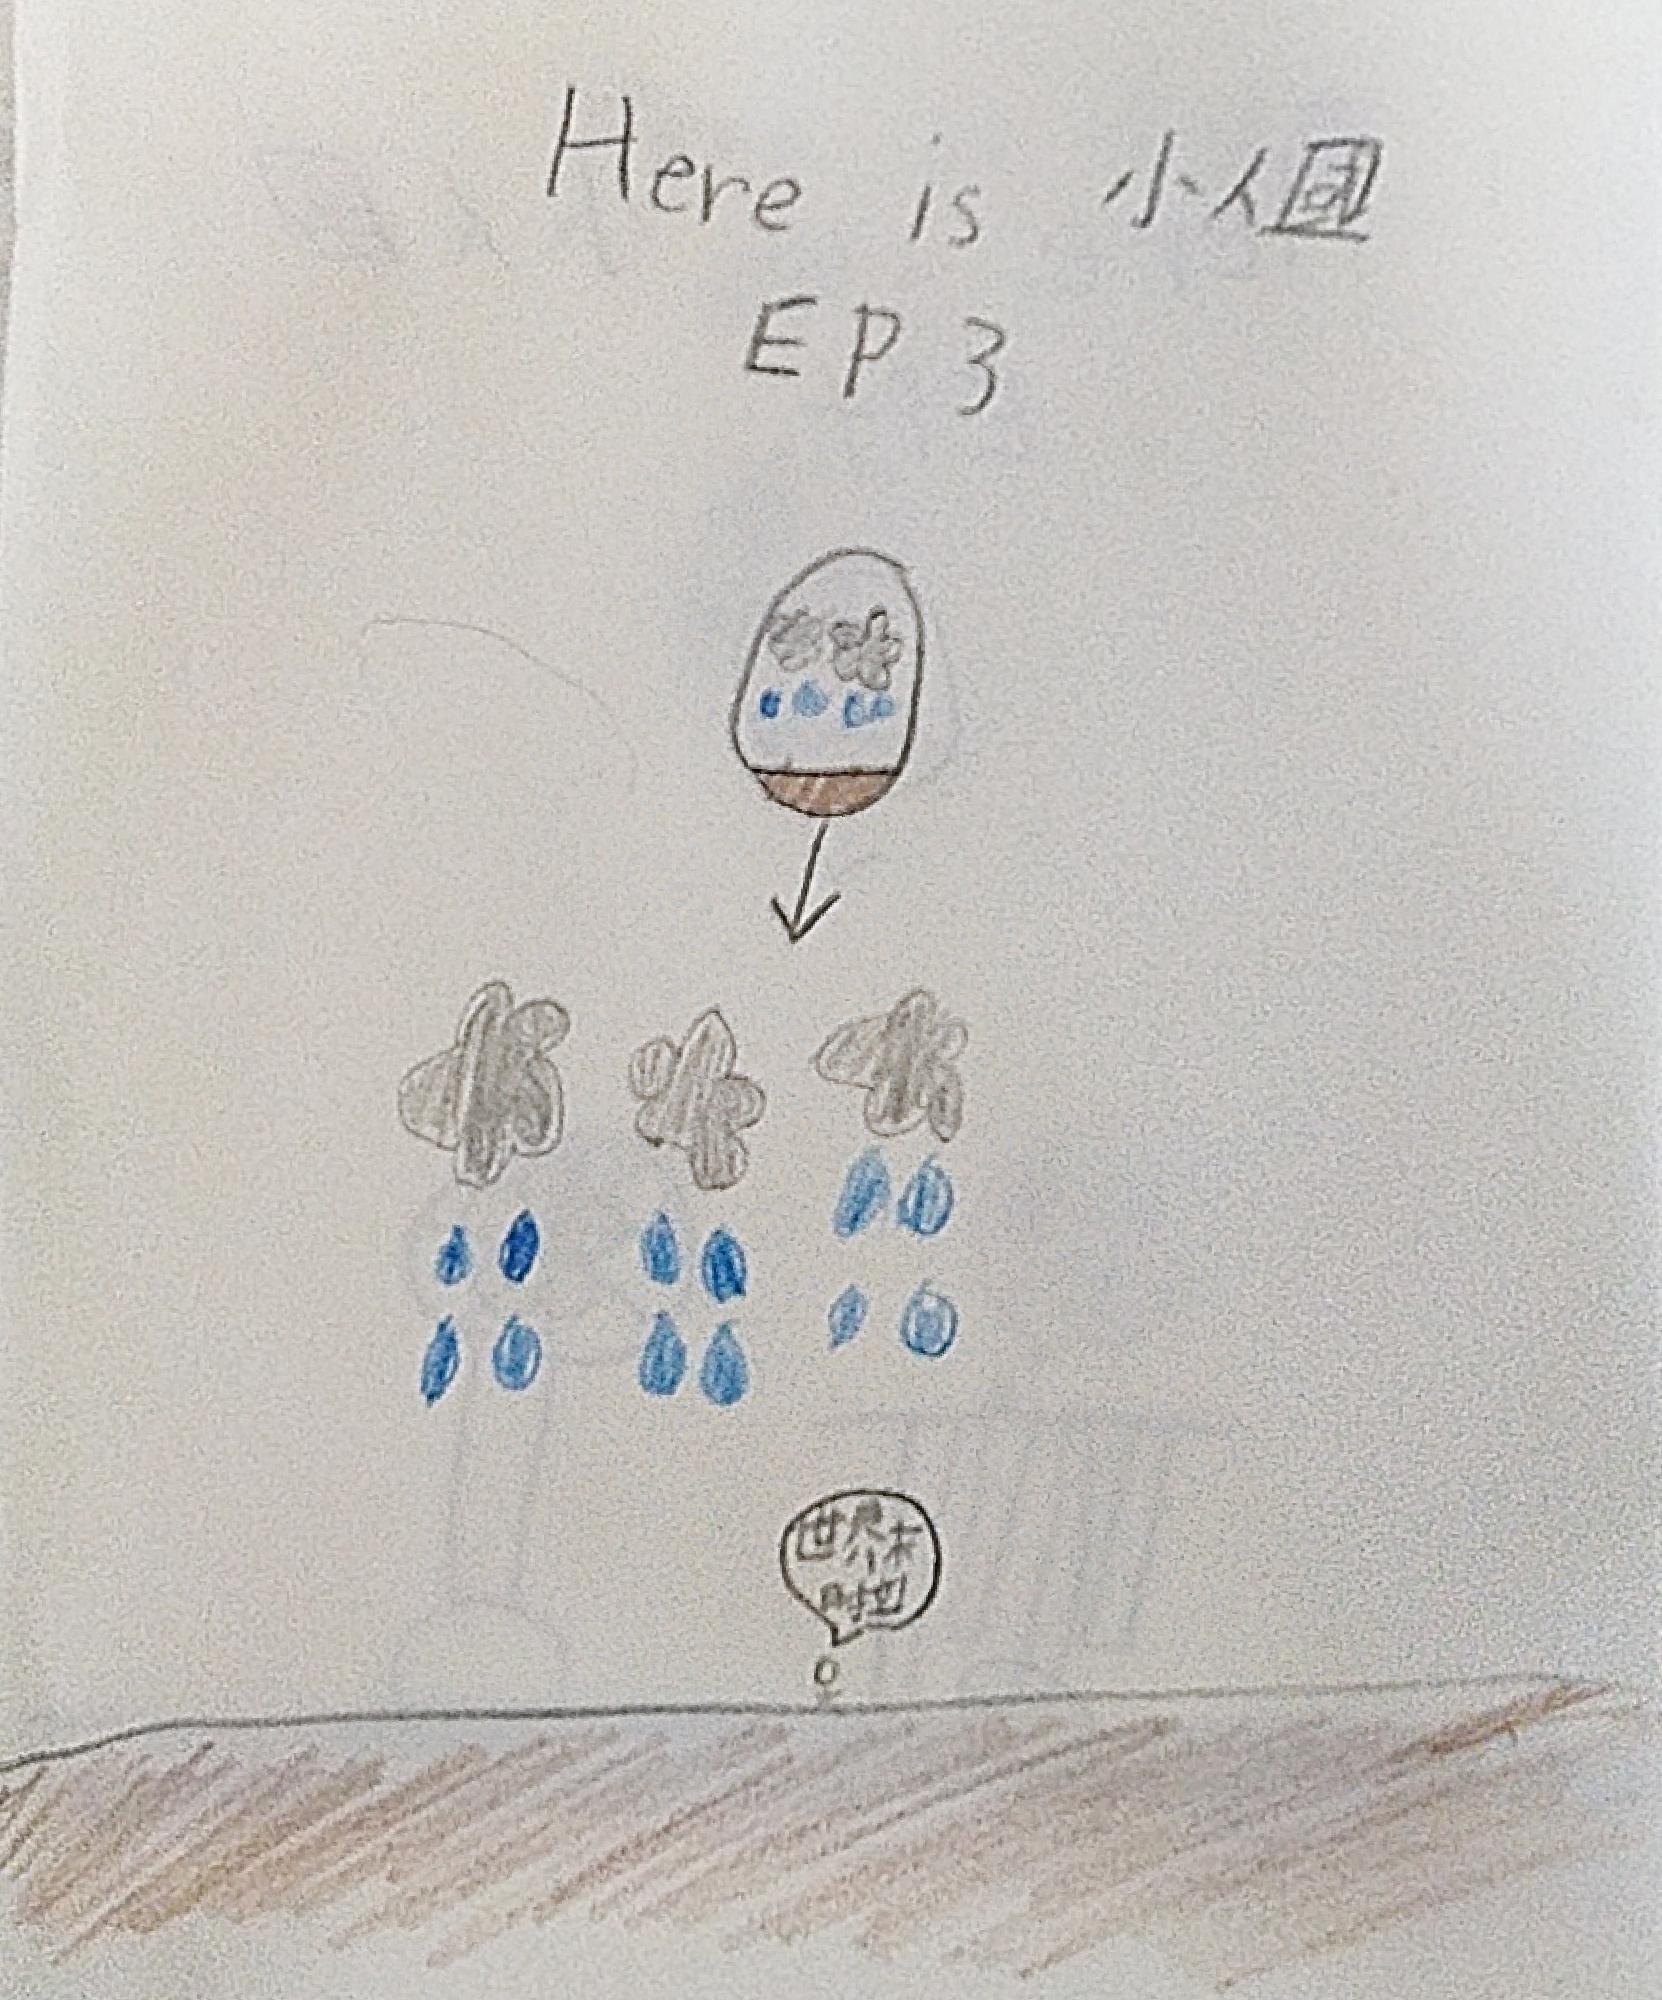 Here is 小人国
EP 3
世界末
时拉